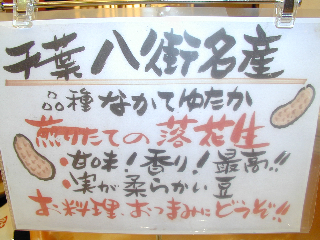 千葉 八街名産
品種 なかてゆたか
煎りたての落花生
・甘味!香り!最高!!
・実が柔らかい豆
お料理、おつまみにどうぞ!!